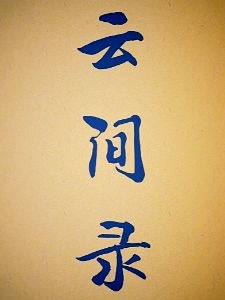 云间录